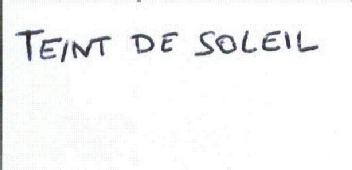 TEINT DE SOLEIL